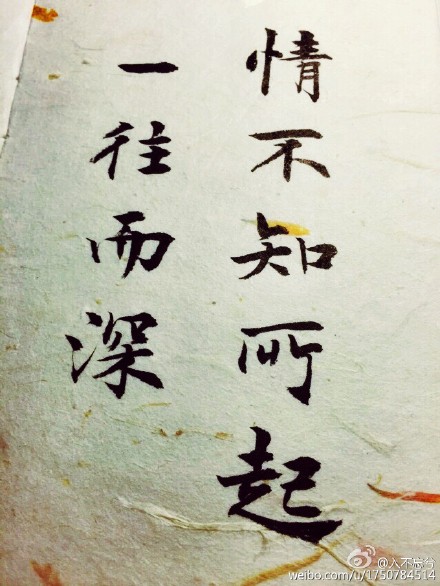 情不知所起
一往而深
@入不忘兮
weibo.com/u/1750784514